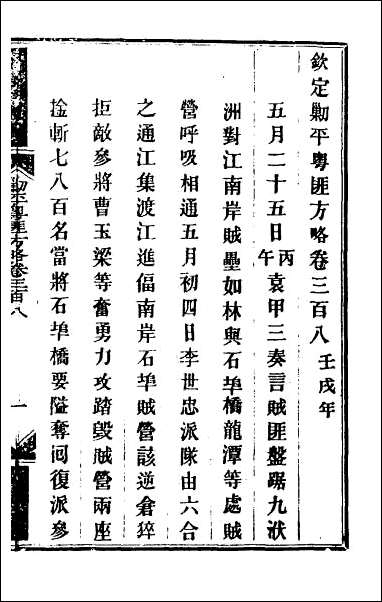 欽定勦平粵匪方略卷三百八 壬戌年
五月二十五日丙午袁甲三奏言賊匪盤踞九洑
洲對江南岸賊壘如林與石埠橋龍潭等處賊
營呼吸相通五月初四日李世忠派隊由六合
之通江集渡江進偪南岸石埠賊營該逆倉猝
拒敵參將曹玉梁等奮勇力攻踏毀賊營兩座
擒斬七八百名當將石埠橋要隘奪回復派參
勦平粵匪方略卷三百八
一